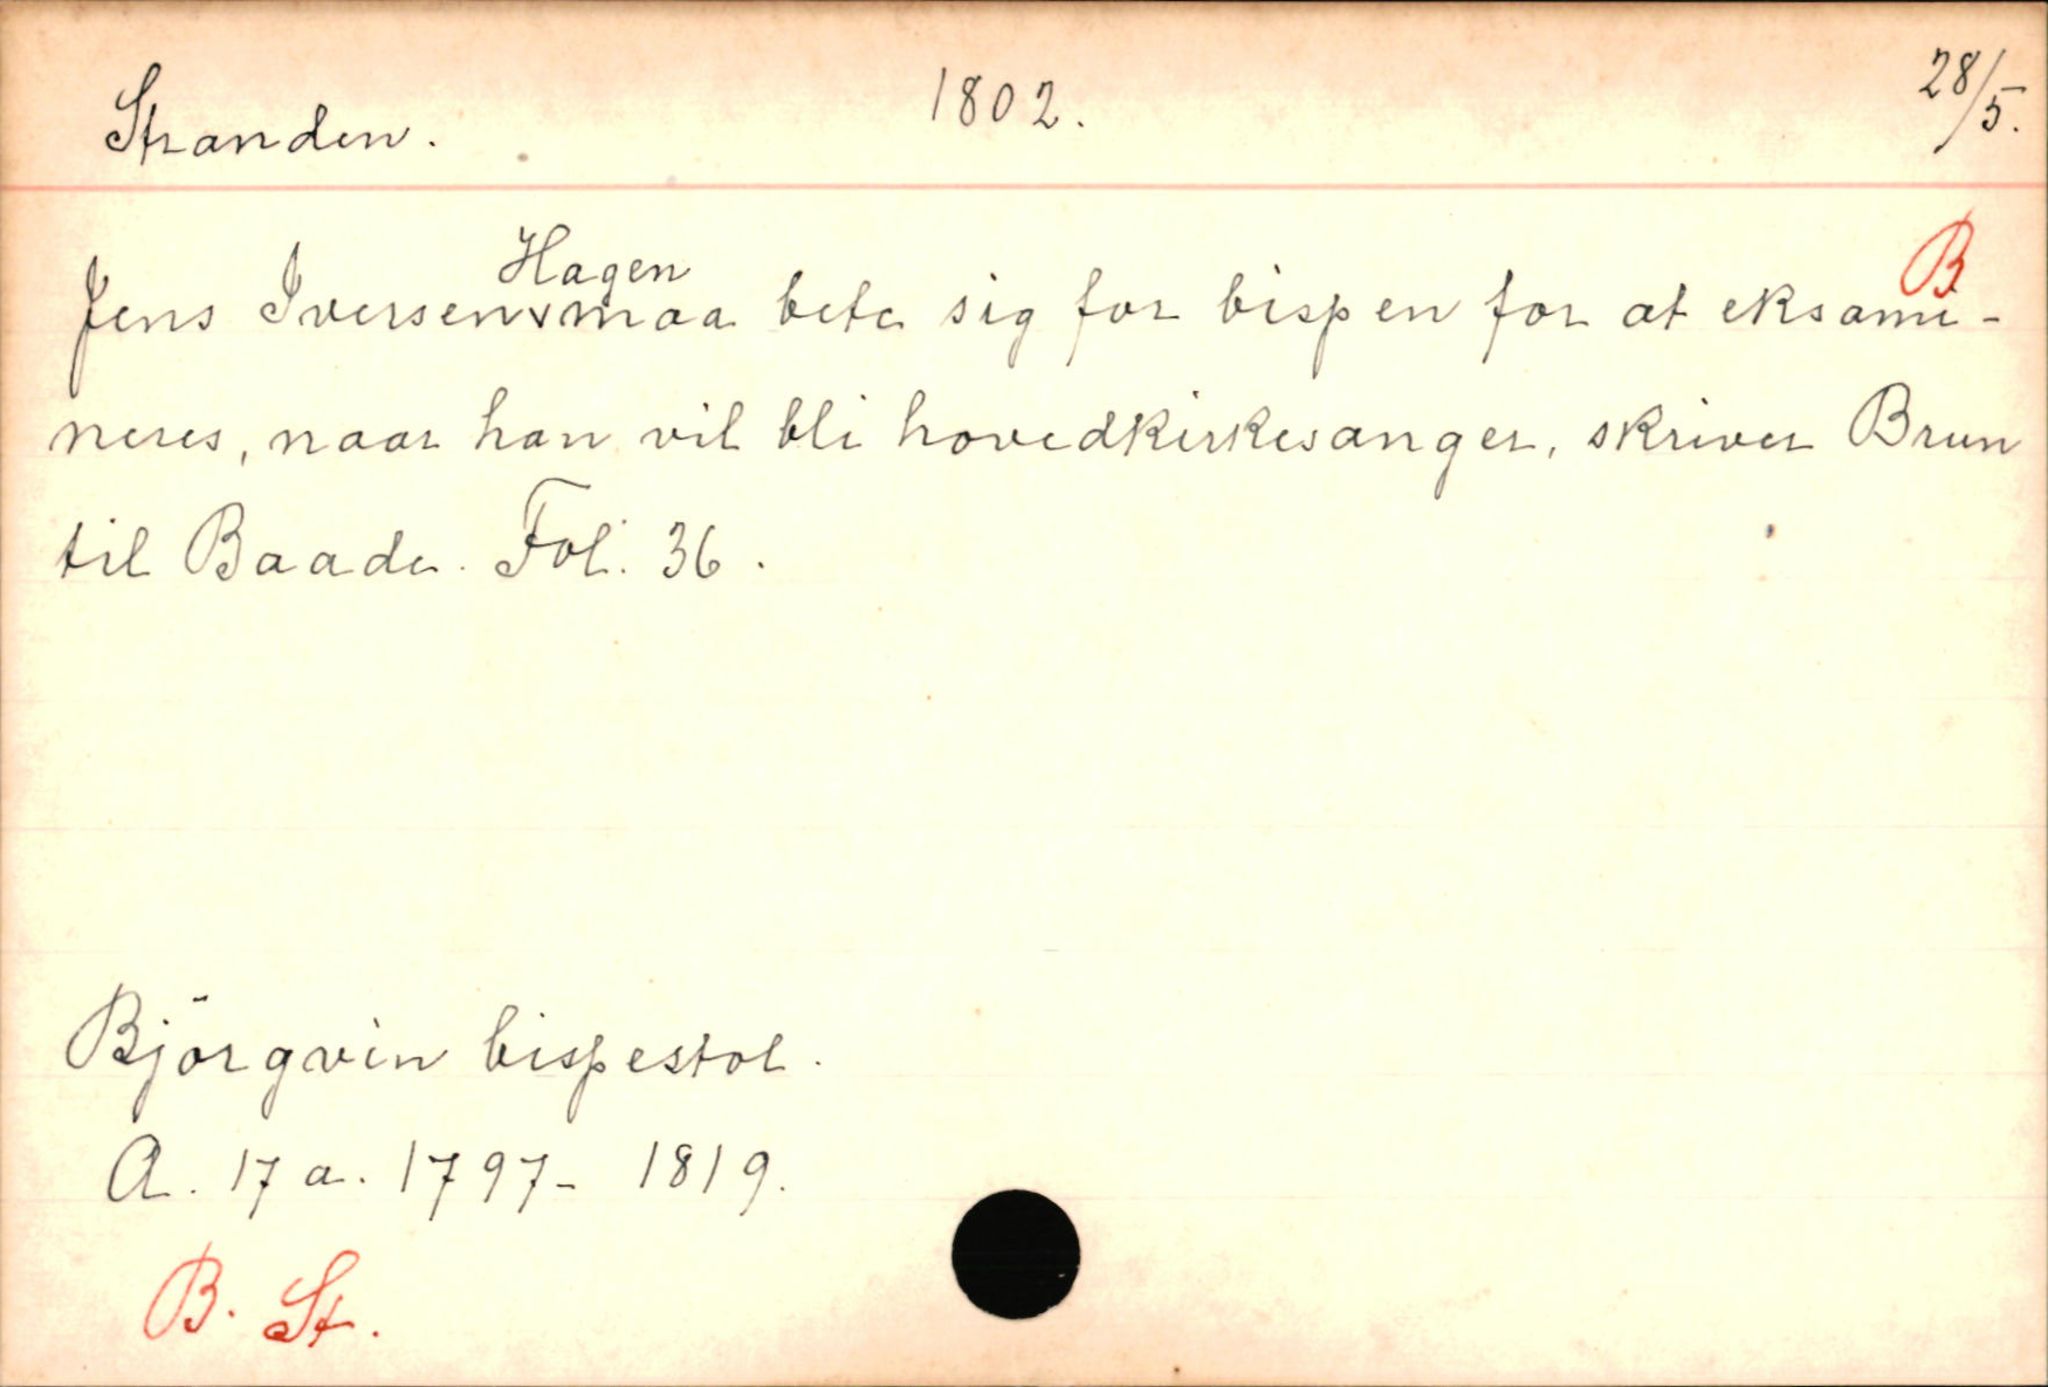 Stranden. 1802. 28/5.
B
Jens Iversen Hagen maa bete sig for bispen for at eksami-
neres, naar han vil bli hovedkirkesanger, skriver Brun
til Baade. Fol. 36.
Björgvin bispestol.
A. 17 a. 1797- 1819.
B. St.